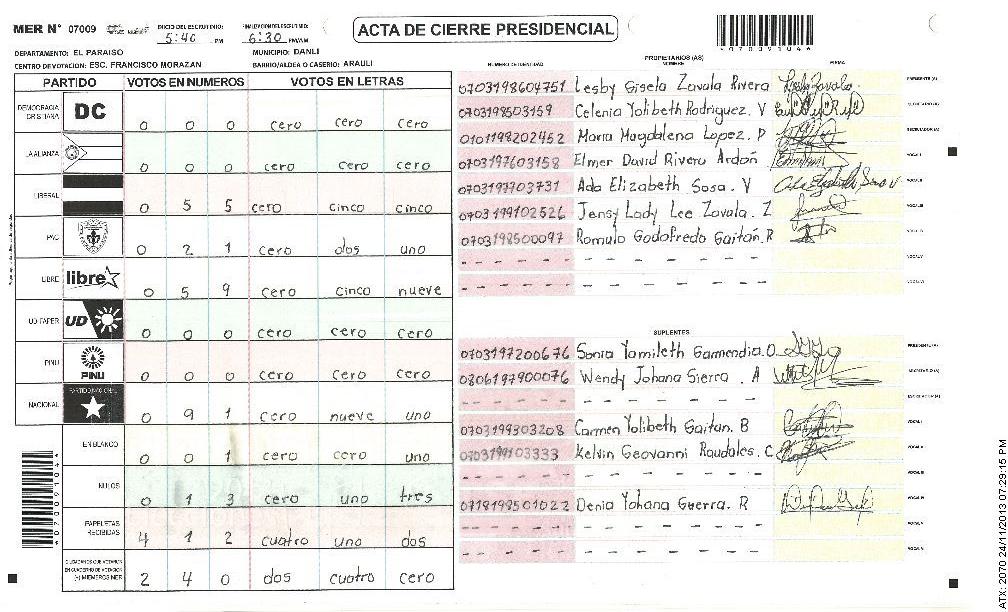 MER N° 07009
INICIO DEL ESCRUTINIO: 5:40 PM
FINALIZACION DEL ESCRUTINIO: 6:30 PM/AM
ACTA DE CIERRE PRESIDENCIAL
*07009104*
DEPARTAMENTO: EL PARAISO
MUNICIPIO: DANLI
CENTRO DE VOTACION: ESC. FRANCISCO MORAZAN
BARRIO/ALDEA O CASERIO: ARAULI
PARTIDO VOTOS EN NUMEROS VOTOS EN LETRAS
DEMOCRACIA CRISTIANA DC 0 0 0 cero cero cero
LA ALIANZA 0 0 0 cero cero cero
LIBERAL 0 5 5 cero cinco cinco
PAC 0 2 1 cero dos uno
LIBRE libre 0 5 9 cero cinco nueve
UD-FAPER UD 0 0 0 cero cero cero
PINU PINU 0 0 0 cero cero cero
NACIONAL PARTIDO NACIONAL 0 9 1 cero nueve uno
EN BLANCO 0 0 1 cero cero uno
NULOS 0 1 3 cero uno tres
PAPELETAS RECIBIDAS 4 1 2 cuatro uno dos
CIUDADANOS QUE VOTARON EN CUADERNO DE VOTACION (+) MIEMBROS MER 2 4 0 dos cuatro cero
PROPIETARIOS (AS)
NUMERO DE IDENTIDAD NOMBRE FIRMA
0703198604751 Lesby Gisela Zavala Rivera PRESIDENTE (A)
0703198503159 Celenia Yolibeth Rodriguez. V SECRETARIO (A)
0101198202452 Maria Magdalena Lopez. P ESCRUTADOR (A)
0703197603158 Elmer David Rivera Ardón VOCAL I
0703197703731 Ada Elizabeth Sosa. V VOCAL II
0703199102526 Jensy Lady Lee Zavala. Z VOCAL III
0703198500097 Romulo Godofredo Gaitán. R VOCAL IV
VOCAL V
VOCAL VI
SUPLENTES
0703197200676 Sonia Yamileth Garmendia. O PRESIDENTE (A)
0806197900076 Wendy Johana Sierra. A SECRETARIO (A)
ESCRUTADOR (A)
0703199303208 Carmen Yolibeth Gaitan. B VOCAL I
0703199103333 Kelvin Geovanni Raudales. C VOCAL II
VOCAL III
0718198501022 Denia Yohana Guerra. R VOCAL IV
VOCAL V
VOCAL VI
ATX: 2070 24/11/2013 07:29:15 PM